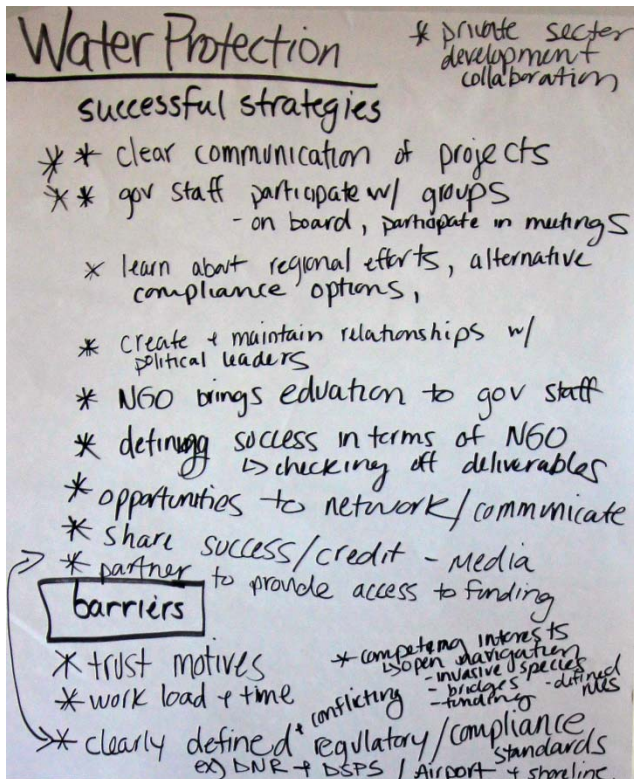 Water Protection
* private sector
development +
collaboration
successful strategies
* * clear communication of projects
* * gov staff participate w/ groups
- on board, participate in meetings
* learn about regional efforts, alternative
compliance options,
* create + maintain relationships w/
political leaders
* NGO brings eduation to gov staff
* defining success in terms of NGO
↳ checking off deliverables
* opportunities to network/communicate
* share success/credit - Media
* partner to provide access to funding
barriers
* trust motives
* work load + time
* competing interests
↳ open navigation
- invasive species
- bridges - defined
- funding rules
* clearly defined + conflicting regulatory/compliance
standards
ex) DNR + DSPS / Airport + shoreline